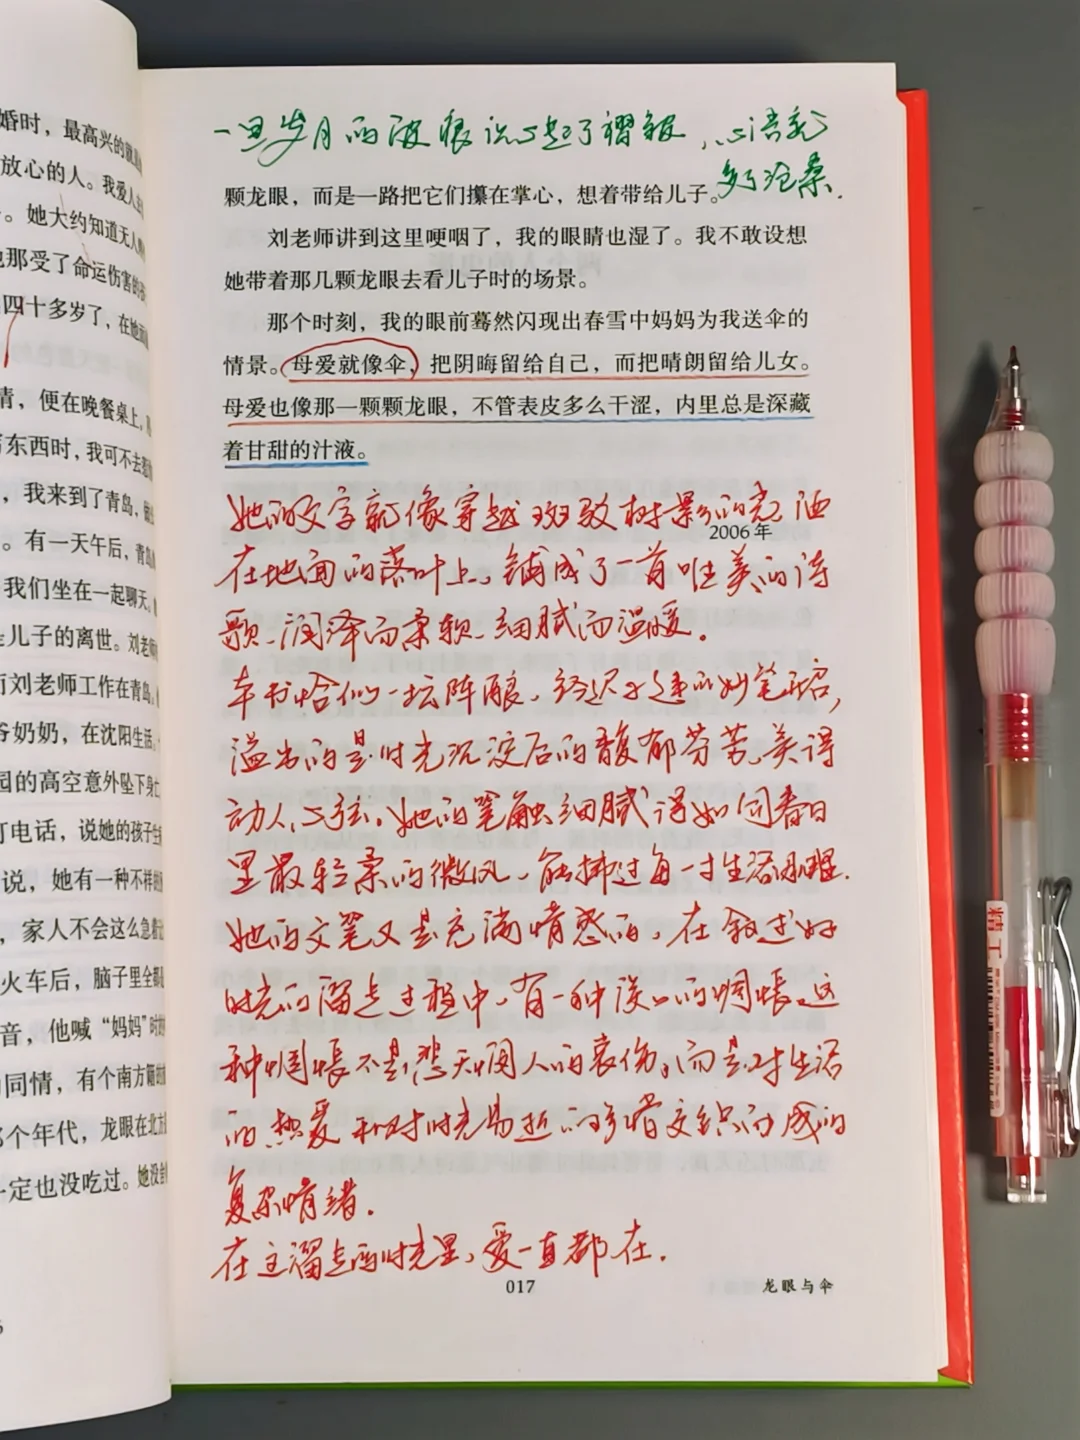 婚时，最高兴的就是
放心的人。我爱人
。她大约知道无人
那受了命运伤害的
四十多岁了，在她面
情，便在晚餐桌上，
东西时，我可不去
，我来到了青岛，
。有一天午后，青岛
我们坐在一起聊天，
儿子的离世。刘老师
而刘老师工作在青岛，
爷奶奶，在沈阳生活。
园的高空意外坠下身亡
打电话，说她的孩子生
说，她有一种不祥
，家人不会这么急着
火车后，脑子里全都
音，他喊“妈妈”时的
同情，有个南方籍的
那个年代，龙眼在北方
一定也没吃过。她没舍
一旦岁月的波痕让心起了褶皱，心语就
多了沧桑.
颗龙眼，而是一路把它们攥在掌心，想着带给儿子。
刘老师讲到这里哽咽了，我的眼睛也湿了。我不敢设想
她带着那几颗龙眼去看儿子时的场景。
那个时刻，我的眼前蓦然闪现出春雪中妈妈为我送伞的
情景。母爱就像伞，把阴晦留给自己，而把晴朗留给儿女。
母爱也像那一颗颗龙眼，不管表皮多么干涩，内里总是深藏
着甘甜的汁液。
她的文字就像穿越斑驳树影的光，洒
2006年
在地面的落叶上，铺成了一首唯美的诗
歌，润泽而柔软，细腻而温暖.
本书恰似一坛陈酿，经迟子建的妙笔
溢出的是时光沉淀后的馥郁芬芳，美得
动人心弦。她的笔触细腻得如同春日
里最轻柔的微风，能拂过每一寸生活肌理.
她的文笔又是充满情感的，在叙述好
时光的溜走过程中，有一种淡淡的惆怅，这
种惆怅不是悲天悯人的哀伤，而是对生活
的热爱和对时光易逝的珍惜交织而成的
复杂情绪.
在这溜走的时光里，爱一直都在.
017
龙眼与伞
精工